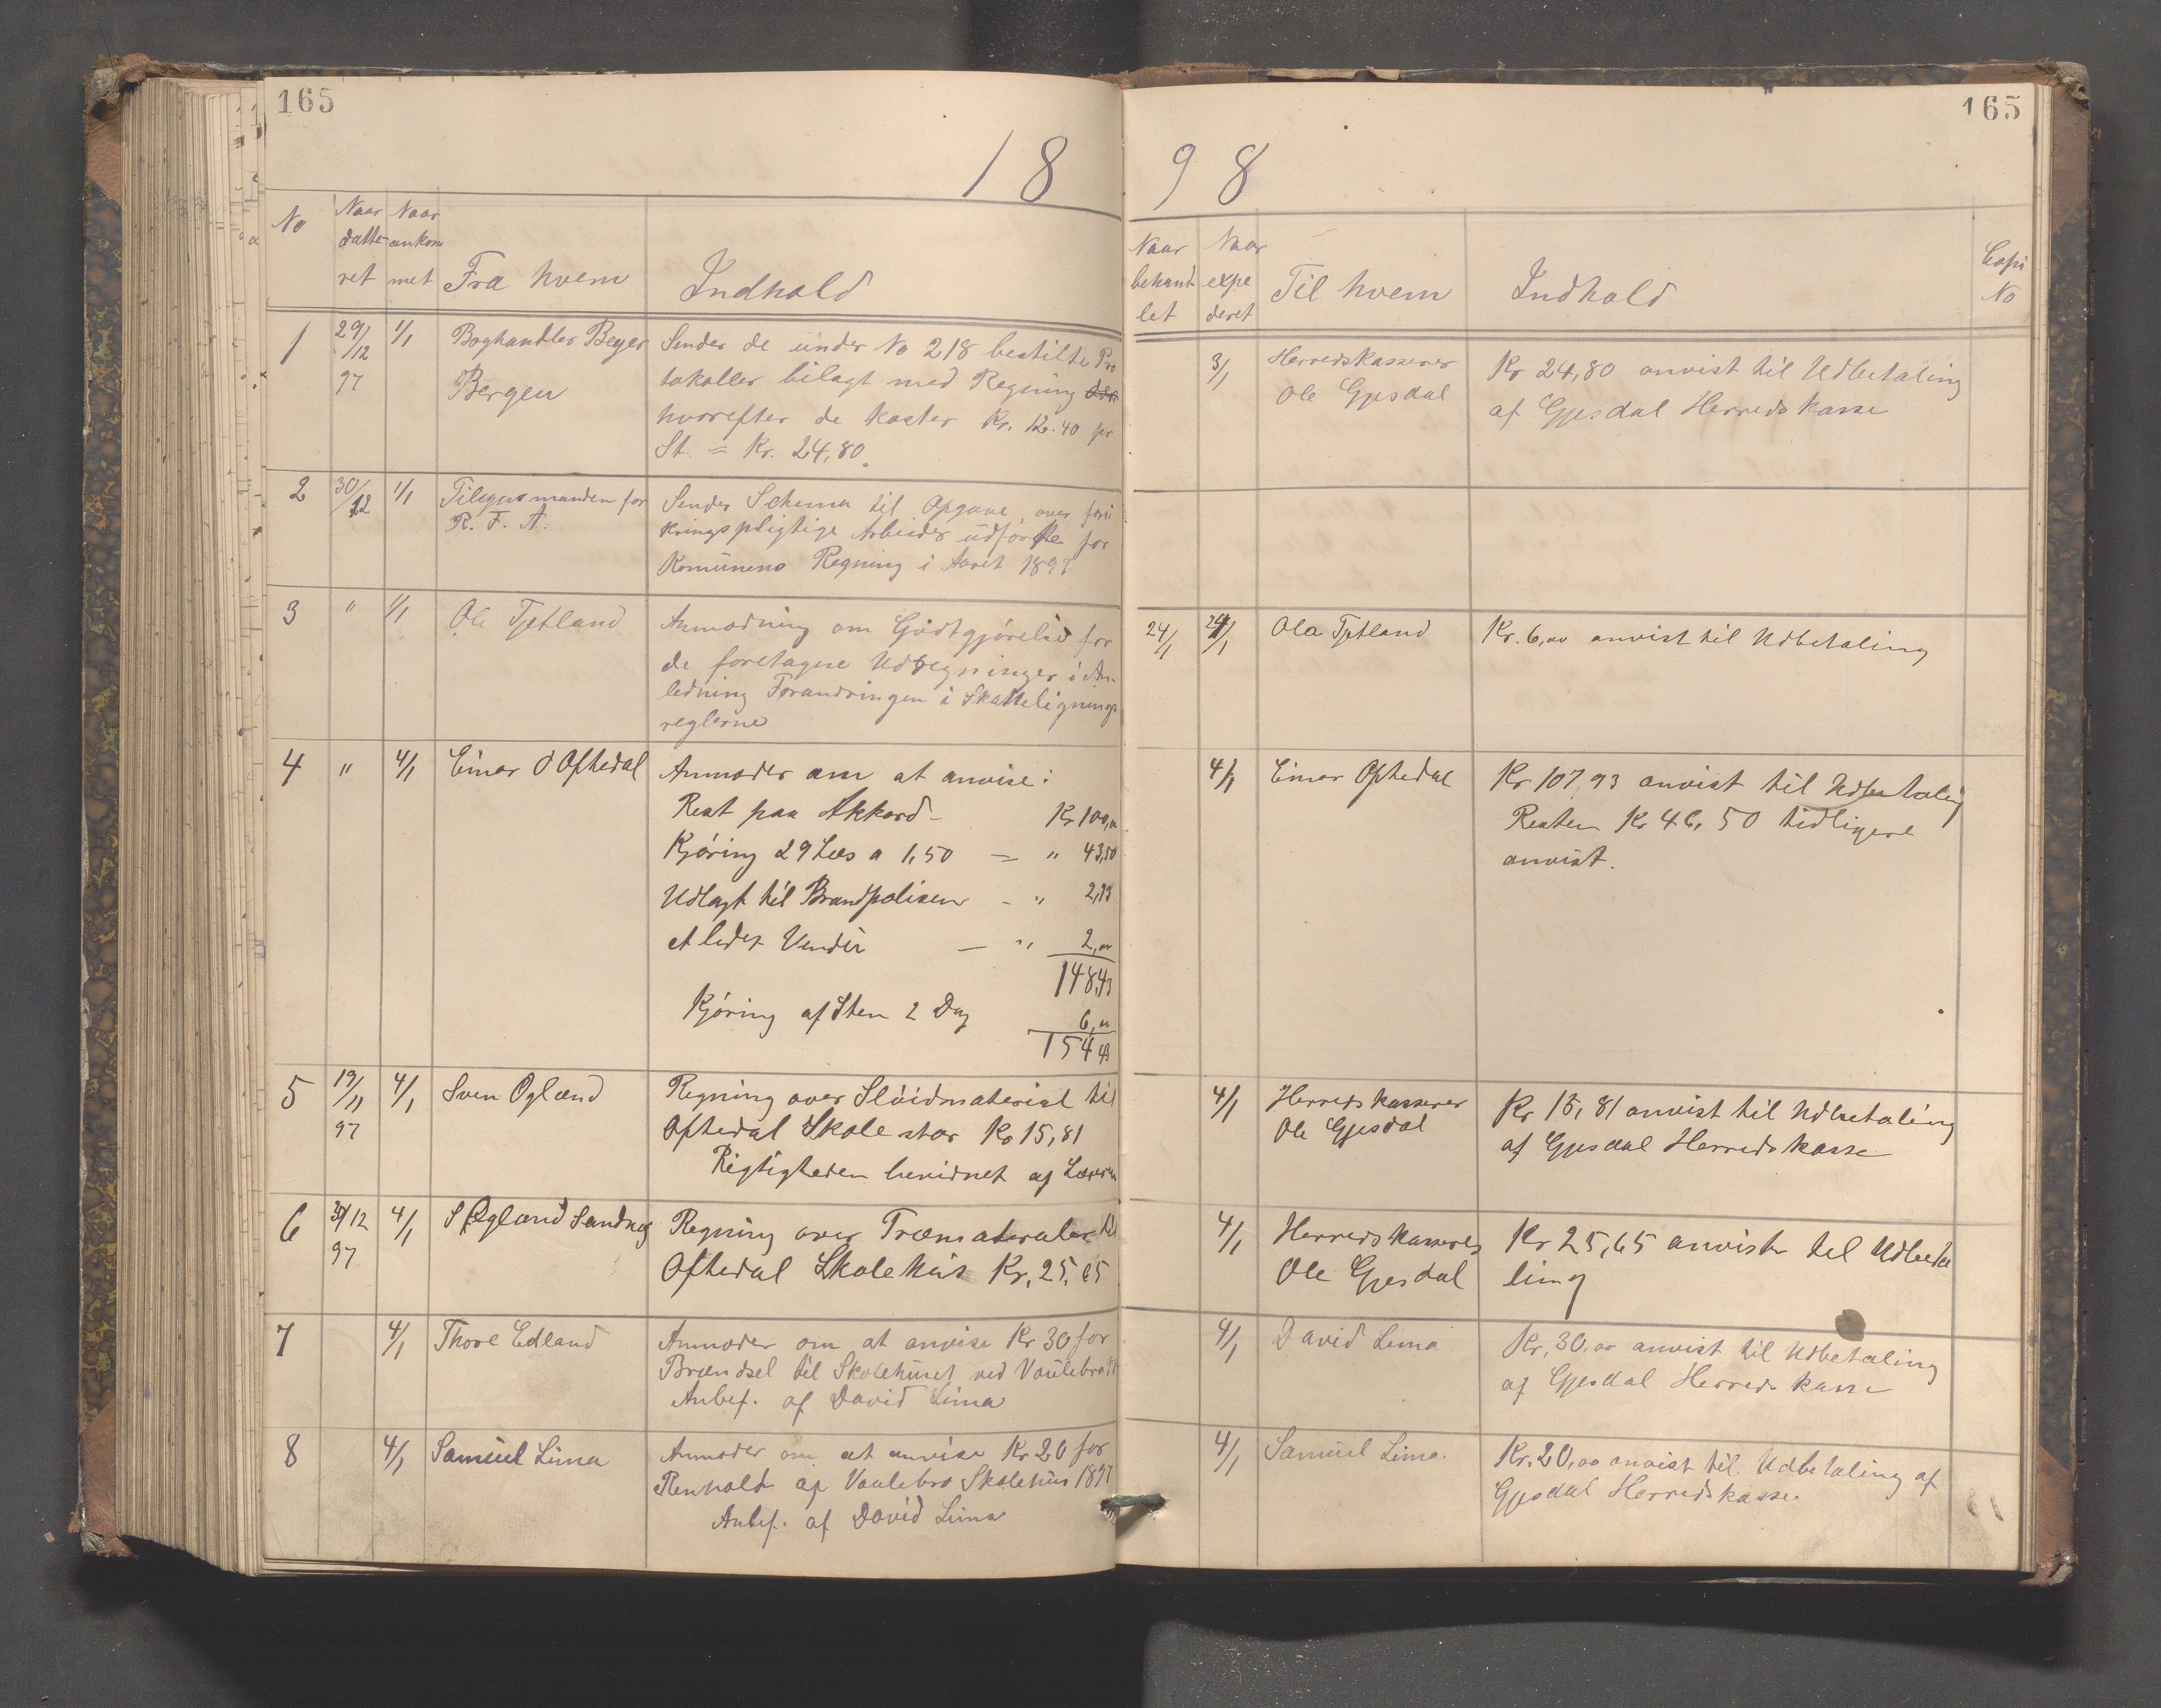 165
165
18 98
No
Naar datte ret
Naar ankom met
Fra hvem
Indhold
Naar behand let
Naar expe deret
Til hvem
Indhold
Copi No
1 29/12 97 1/1 Boghandler Beyer
Bergen
Sender de under No 218 bestilte Pro
tokoller bilagt med Regning
hvorefter de koster Kr. 12.40 pr
St. = Kr. 24,80
3/1 Herredskasserer
Ole Gjesdal
Kr 24,80 anvist til Udbetaling
af Gjesdal Herredskasse
2 30/12 1/1 Tilsynsmanden for
R. F. A.
Sender Schema til Opgave over forsi
kringspligtige Arbeider udførte for
Komunens Regning i Aaret 1897
3 " 1/1 Ole Tjetland
Anmodning om Godtgjørelse for
de foretagne Udregninger i An-
ledning Forandringen i Skattelignings
reglerne
24/1 24/1 Ola Tjetland
Kr. 6,00 anvist til Udbetaling
4 " 4/1 Einar O Oftedal
Anmoder om at anvise:
Rest paa Akkord - Kr 100,00
Kjøring 29 Læs a 1,50 = " 43,50
Udlagt til Brandpolisen - " 2,93
et ledet Vendir - " 2,00
148,43
Kjøring af Sten 2 Dag 6,00
154 43
4/1 Einar Oftedal
Kr 107,93 anvist til Udbetaling
Resten Kr 46,50 tidligere
anvist.
5 19/11 97 4/1 Sven Ogland
Regning over Sløidmaterial til
Oftedal Skole stor Kr 15,81
Rigtigheden bevidnet af Læreren
4/1 Herredskasserer
Ole Gjesdal
Kr 15,81 anvist til Udbetaling
af Gjesdal Herredskasse
6 31/12 97 4/1 S Øgland Sandnes
Regning over Træmaterialer til
Oftedal Skolehus Kr. 25,65
4/1 Herredskasserer
Ole Gjesdal
Kr 25,65 anvist til Udbeta
ling
7 4/1 Thore Edland
Anmoder om at anvise Kr 30 for
Brændsel til Skolehuset ved Vaulebrott
Anbef. af David Lima
4/1 David Lima
Kr. 30,00 anvist til Udbetaling
af Gjesdal Herredskasse
8 4/1 Samuel Lima
Anmoder om at anvise Kr 20 for
Renhold af Vaulebro Skolehus 1897
Anbef. af David Lima
4/1 Samuel Lima.
Kr. 20,00 anvist til Udbetaling af
Gjesdal Herredskasse